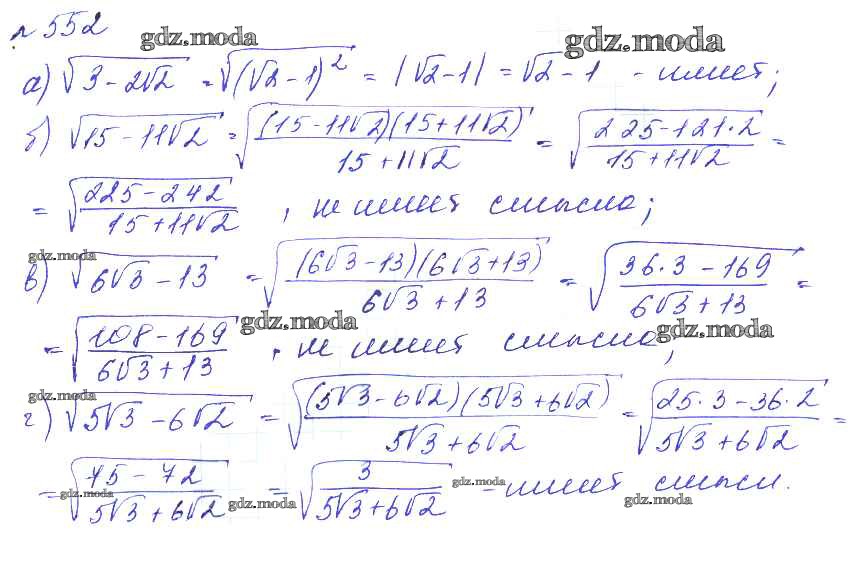 № 552
gdz.moda gdz.moda
а) √(3 − 2√2) = √((√2 − 1)²) = |√2 − 1| = √2 − 1 - имеет;
б) √(15 − 11√2) = √((15 − 11√2)(15 + 11√2) / (15 + 11√2)) = √((225 − 121·2) / (15 + 11√2)) =
= √((225 − 242) / (15 + 11√2)), не имеет смысла;
gdz.moda
в) √(6√3 − 13) = √((6√3 − 13)(6√3 + 13) / (6√3 + 13)) = √((36·3 − 169) / (6√3 + 13)) =
gdz.moda gdz.moda
= √((108 − 169) / (6√3 + 13)), не имеет смысла;
gdz.moda
г) √(5√3 − 6√2) = √((5√3 − 6√2)(5√3 + 6√2) / (5√3 + 6√2)) = √((25·3 − 36·2) / (5√3 + 6√2)) =
= √((75 − 72) / (5√3 + 6√2)) = √(3 / (5√3 + 6√2)) - имеет смысл.
gdz.moda gdz.moda gdz.moda gdz.moda